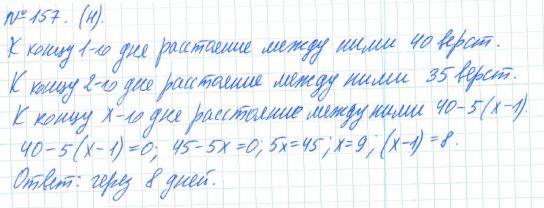 №157. (н).
К концу 1-го дне расстояние между ними 40 верст.
К концу 2-го дне расстояние между ними 35 верст.
К концу х-го дне расстояние между ними 40-5(х-1).
40-5(х-1)=0; 45-5х=0; 5х=45; х=9; (х-1)=8.
Ответ: через 8 дней.